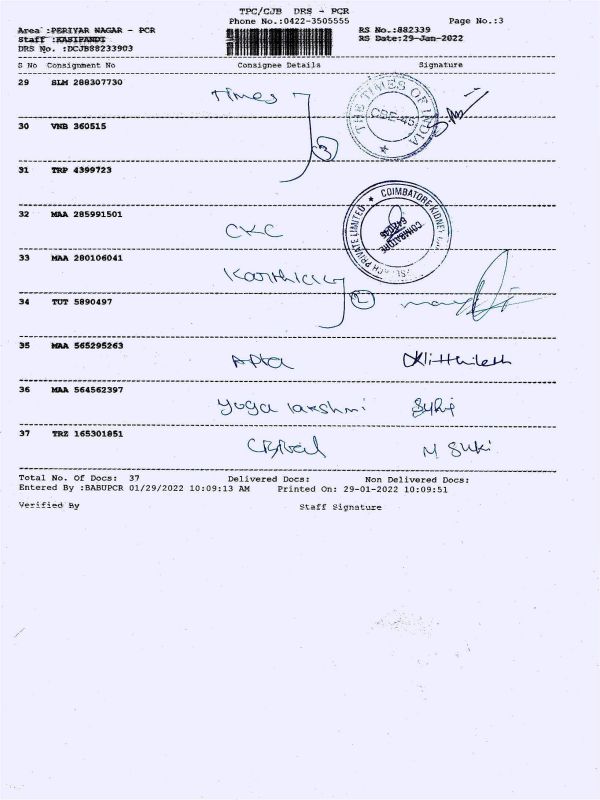 TPC/CJB DRS - PCR
Phone No.:0422-3505555 Page No.:3
Area :PERIYAR NAGAR - PCR RS No.:882339
Staff :KASIPANDI RS Date:29-Jan-2022
DRS No. :DCJB88233903
S No Consignment No Consignee Details Signature
29 SLM 288307730
Times
THE TIMES OF INDIA
CBE-45
30 VNB 360515
3
31 TRP 4399723
32 MAA 285991501
CKC
COIMBATORE KIDNEY
PRIVATE LIMITED
COIMBATORE
33 MAA 280106041
Karthick
2
34 TUT 5890497
35 MAA 565295263
36 MAA 564562397
Yoga lakshmi
37 TRZ 165301851
M Suki
Total No. Of Docs: 37 Delivered Docs: Non Delivered Docs:
Entered By :BABUPCR 01/29/2022 10:09:13 AM Printed On: 29-01-2022 10:09:51
Verified By Staff Signature